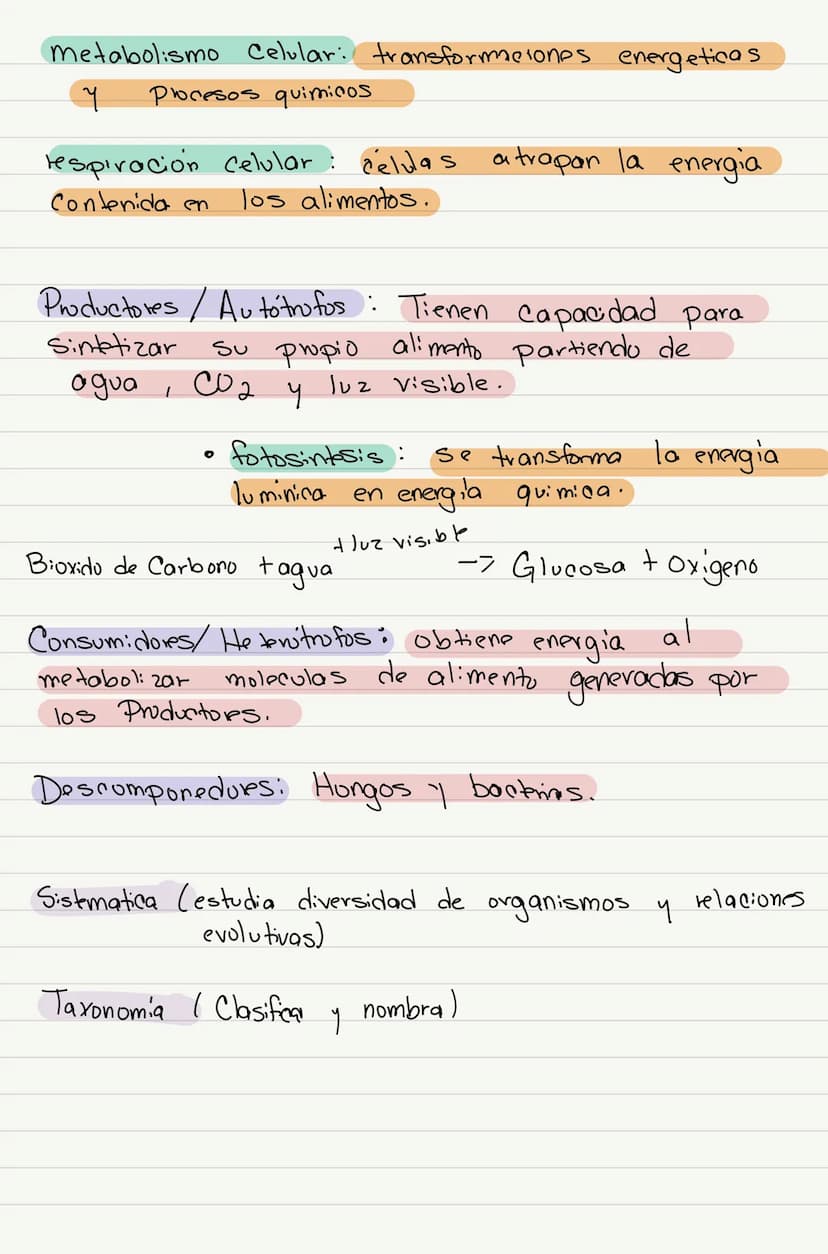 metabolismo celular: transformaciones energeticas
y procesos quimicos
respiración celular: células atrapan la energia
contenida en los alimentos.
Productores / Autótrofos: Tienen capacidad para
sintetizar su propio alimento partiendo de
agua, CO2 y luz visible.
• fotosintesis: se transforma la energia
luminica en energia quimica.
+ luz visible
Bioxido de Carbono + agua -> Glucosa + Oxigeno
Consumidores/ Heterótrofos: obtiene energia al
metabolizar moleculas de alimento generadas por
los Productores.
Descomponedores: Hongos y bacterias.
Sistematica (estudia diversidad de organismos y relaciones
evolutivas)
Taxonomía (Clasifica y nombra)